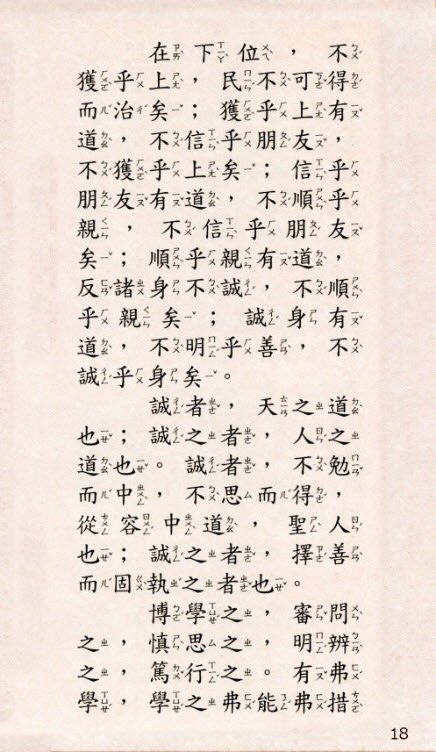 在下位，不
獲乎上，民不可得
而治矣；獲乎上有
道，不信乎朋友，
不獲乎上矣；信乎
朋友有道，不順乎
親，不信乎朋友
矣；順乎親有道，
反諸身不誠，不順
乎親矣；誠身有
道，不明乎善，不
誠乎身矣。
誠者，天之道
也；誠之者，人之
道也。誠者，不勉
而中，不思而得，
從容中道，聖人
也；誠之者，擇善
而固執之者也。
博學之，審問
之，慎思之，明辨
之，篤行之。有弗
學，學之弗能弗措
18